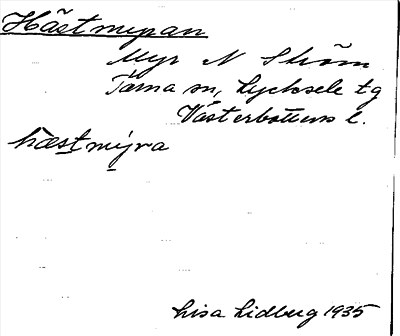 Hästmyran
Myr N Ström
Tärna sn, Lycksele tg
Västerbottens l.
hæstmýra
Lisa Lidberg 1935